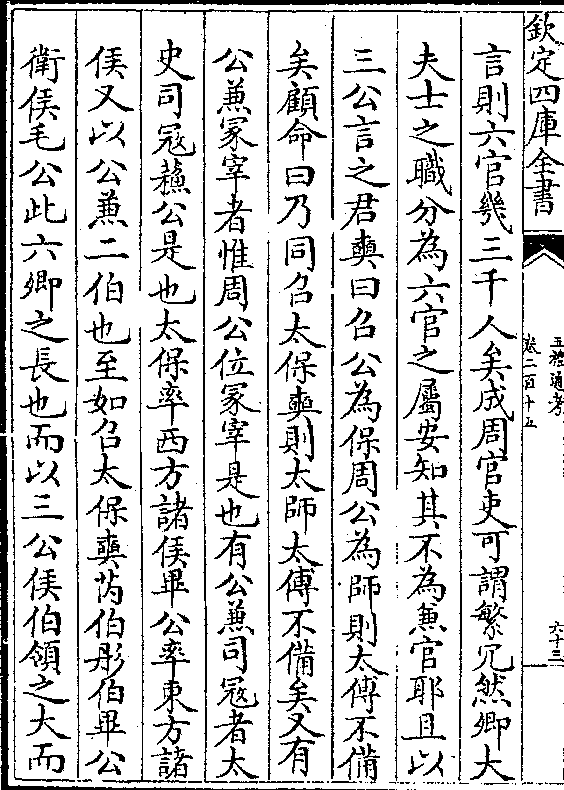 欽定四庫全書
五禮通考
卷二百十五
六十三
言則六官幾三千人矣成周官吏可謂繁冗然卿大
夫士之職分為六官之屬安知其不為兼官耶且以
三公言之君奭曰召公為保周公為師則太傅不備
矣顧命曰乃同召太保奭則太師太傅不備矣又有
公兼冢宰者惟周公位冢宰是也有公兼司寇者太
史司寇蘇公是也太保率西方諸侯畢公率東方諸
侯又以公兼二伯也至如召太保奭芮伯彤伯畢公
衛侯毛公此六卿之長也而以三公侯伯領之大而